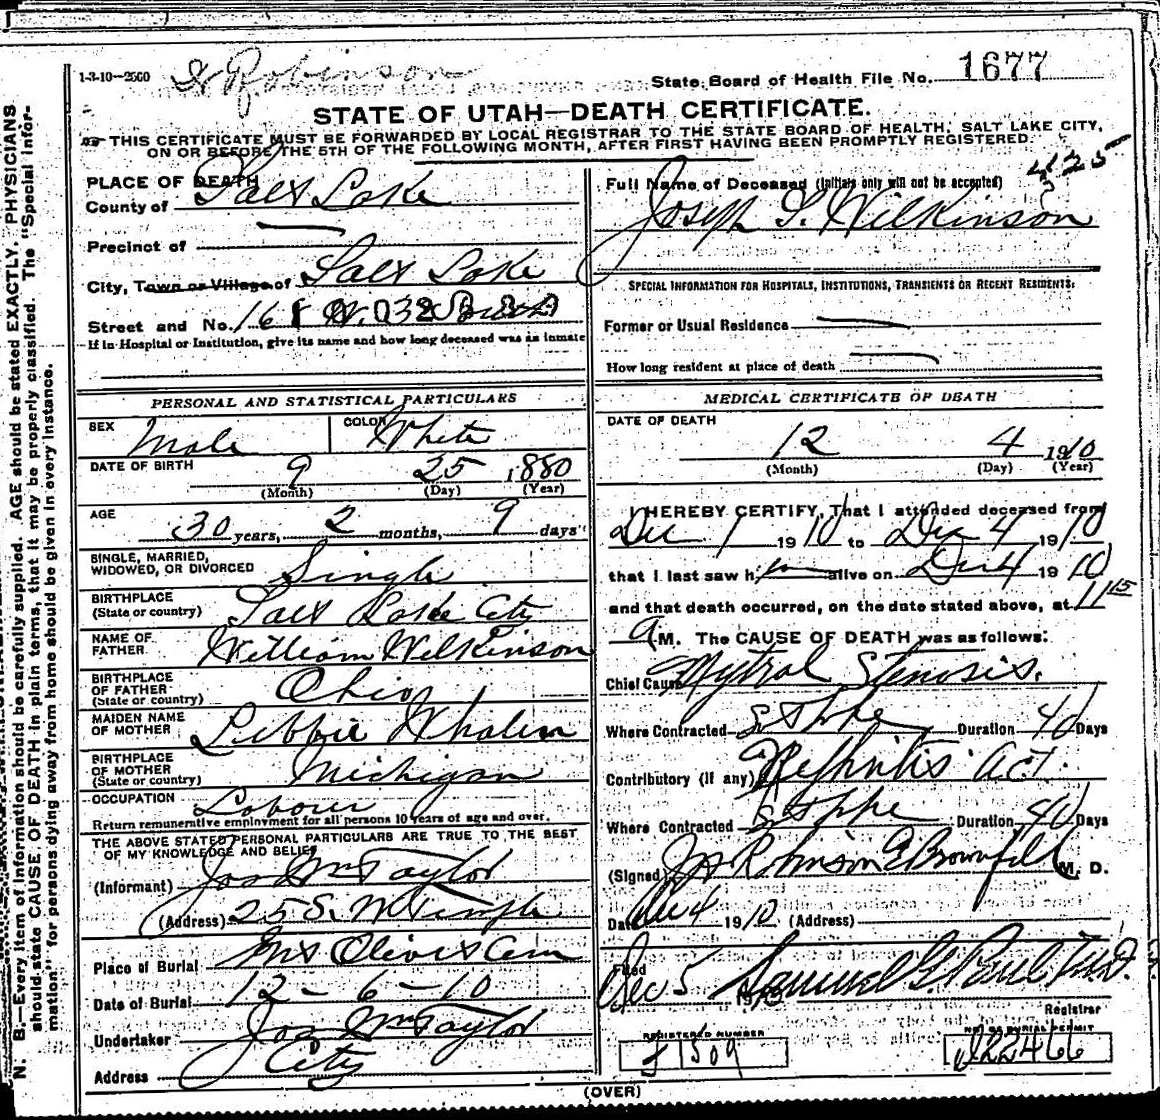 N. B.—Every item of information should be carefully supplied. AGE should be stated EXACTLY. PHYSICIANS
should state CAUSE OF DEATH in plain terms, that it may be properly classified. The "Special Infor-
mation" for persons dying away from home should be given in every instance.
1-3-10—2500
Robinson
State Board of Health File No. 1677
STATE OF UTAH—DEATH CERTIFICATE.
THIS CERTIFICATE MUST BE FORWARDED BY LOCAL REGISTRAR TO THE STATE BOARD OF HEALTH, SALT LAKE CITY,
ON OR BEFORE THE 5TH OF THE FOLLOWING MONTH, AFTER FIRST HAVING BEEN PROMPTLY REGISTERED.
425
PLACE OF DEATH
County of Salt Lake
Precinct of —
City, Town or Village of Salt Lake
Street and No.
If in Hospital or Institution, give its name and how long deceased was an inmate
PERSONAL AND STATISTICAL PARTICULARS
SEX Male
COLOR White
DATE OF BIRTH 9 25 1880
(Month) (Day) (Year)
AGE 30 years, 2 months, 9 days
SINGLE, MARRIED,
WIDOWED, OR DIVORCED Single
BIRTHPLACE
(State or country) Salt Lake City
NAME OF
FATHER William Wilkinson
BIRTHPLACE
OF FATHER
(State or country) Ohio
MAIDEN NAME
OF MOTHER Libbie Whalen
BIRTHPLACE
OF MOTHER
(State or country) Michigan
OCCUPATION Labour
Return remunerative employment for all persons 10 years of age and over.
THE ABOVE STATED PERSONAL PARTICULARS ARE TRUE TO THE BEST
OF MY KNOWLEDGE AND BELIEF
(Informant) Jos Wm Taylor
(Address) 25 S. W Temple
Place of Burial Mt Olivet Cem
Date of Burial 12-6-10
Undertaker Jos Wm Taylor
Address City
Full Name of Deceased (Initials only will not be accepted)
Joseph S. Wilkinson
SPECIAL INFORMATION FOR HOSPITALS, INSTITUTIONS, TRANSIENTS OR RECENT RESIDENTS.
Former or Usual Residence —
How long resident at place of death —
MEDICAL CERTIFICATE OF DEATH
DATE OF DEATH
12 4 1910
(Month) (Day) (Year)
I HEREBY CERTIFY, That I attended deceased from
Dec 1 1910 to Dec 4 1910
that I last saw him alive on Dec 4 1910
and that death occurred, on the date stated above, at 11 15
a M. The CAUSE OF DEATH was as follows:
Chief Cause Mytral Stenosis.
Where Contracted Duration 40 Days
Contributory (if any) Nephritis act.
Where Contracted Duration 40 Days
(Signed) Jos Robinson Brownfield M. D.
Date Dec 4 1910 (Address)
Filed Dec 5 Samuel G Paul M.D.
Registrar
REGISTERED NUMBER
J 1309
NO. OF BURIAL PERMIT
J22466
(OVER)